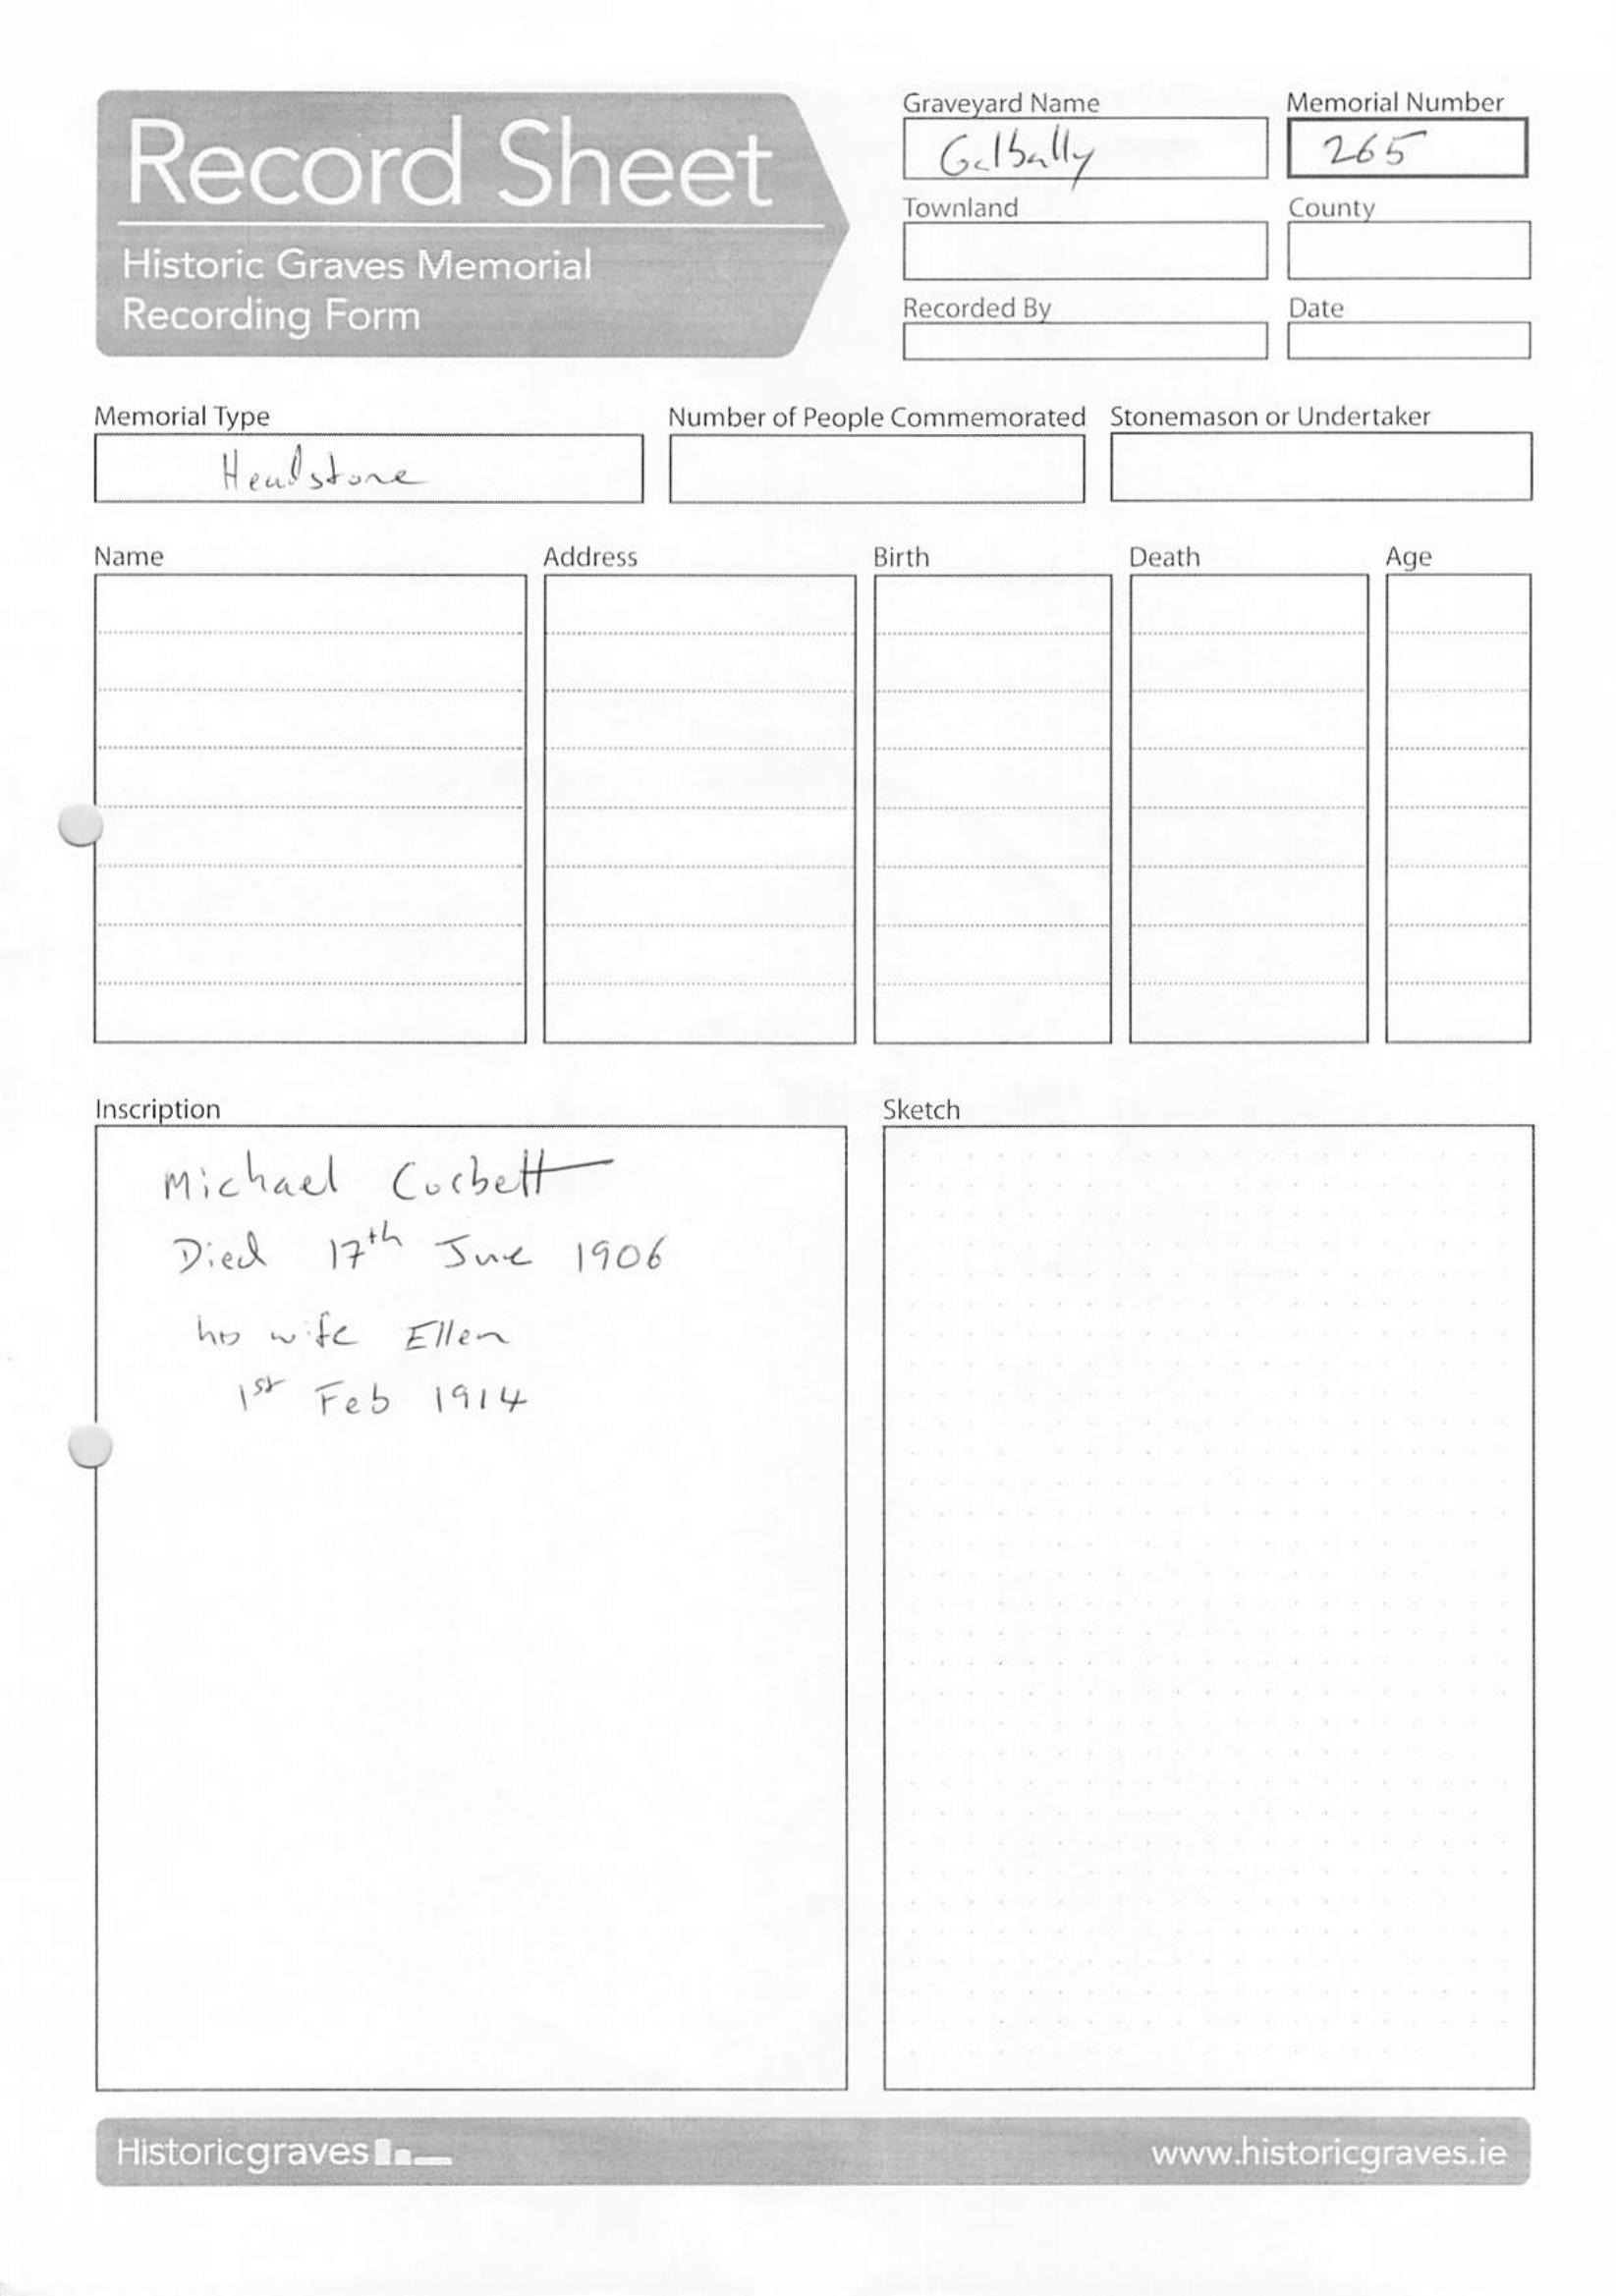 Record Sheet
Historic Graves Memorial
Recording Form
Graveyard Name
Galbally
Memorial Number
265
Townland
County
Recorded By
Date
Memorial Type
Headstone
Number of People Commemorated
Stonemason or Undertaker
Name
Address
Birth
Death
Age
Inscription
Michael Corbett
Died 17th June 1906
his wife Ellen
1st Feb 1914
Sketch
Historicgraves
www.historicgraves.ie